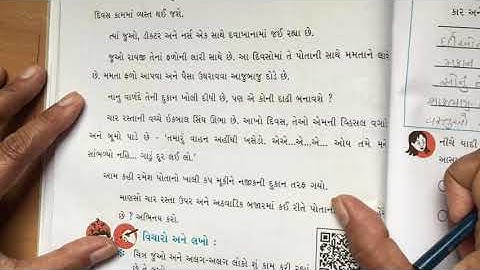 દિવસ કામમાં વ્યસ્ત થઈ જશે.
ત્યાં જુઓ, ડૉક્ટર અને નર્સ એક સાથે દવાખાનામાં જઈ રહ્યા છે.
જુઓ રાવજી તેનાં ફળોની લારી સાથે છે. આ દિવસોમાં તે પોતાની સાથે મમતાને લાવે
છે. મમતા ફળો આપવા અને પૈસા ઉઘરાવવા આજુબાજુ દોડે છે.
નાનુ વાળંદે તેની દુકાન ખોલી દીધી છે, પણ એ કોની દાઢી બનાવશે ?
ચાર રસ્તાની વચ્ચે ઈકબાલ સિંઘ ઊભા છે. આખો દિવસ, તેઓ એમની વ્હિસલ વગાડે
અને બૂમો પાડે છે - 'તમારું વાહન અહીંથી ખસેડો. એએ...એ...એ... ઓય તમે મને
સાંભળ્યો નહિ... ગાડું દૂર લઈ લો.'
આમ કહી રમેશ પોતાનો ખાલી કપ મૂકીને નજીકની દુકાન તરફ ગયો.
માણસો ચાર રસ્તા ઉપર અને અઠવાડિક બજારમાં કઈ રીતે પોતાના
છે ? અભિનય કરો.
વિચારો અને લખો :
ચિત્ર જુઓ અને અલગ-અલગ લોકો શું કામ કરી રહ્યાં
કાર અને
નીચે યાદી